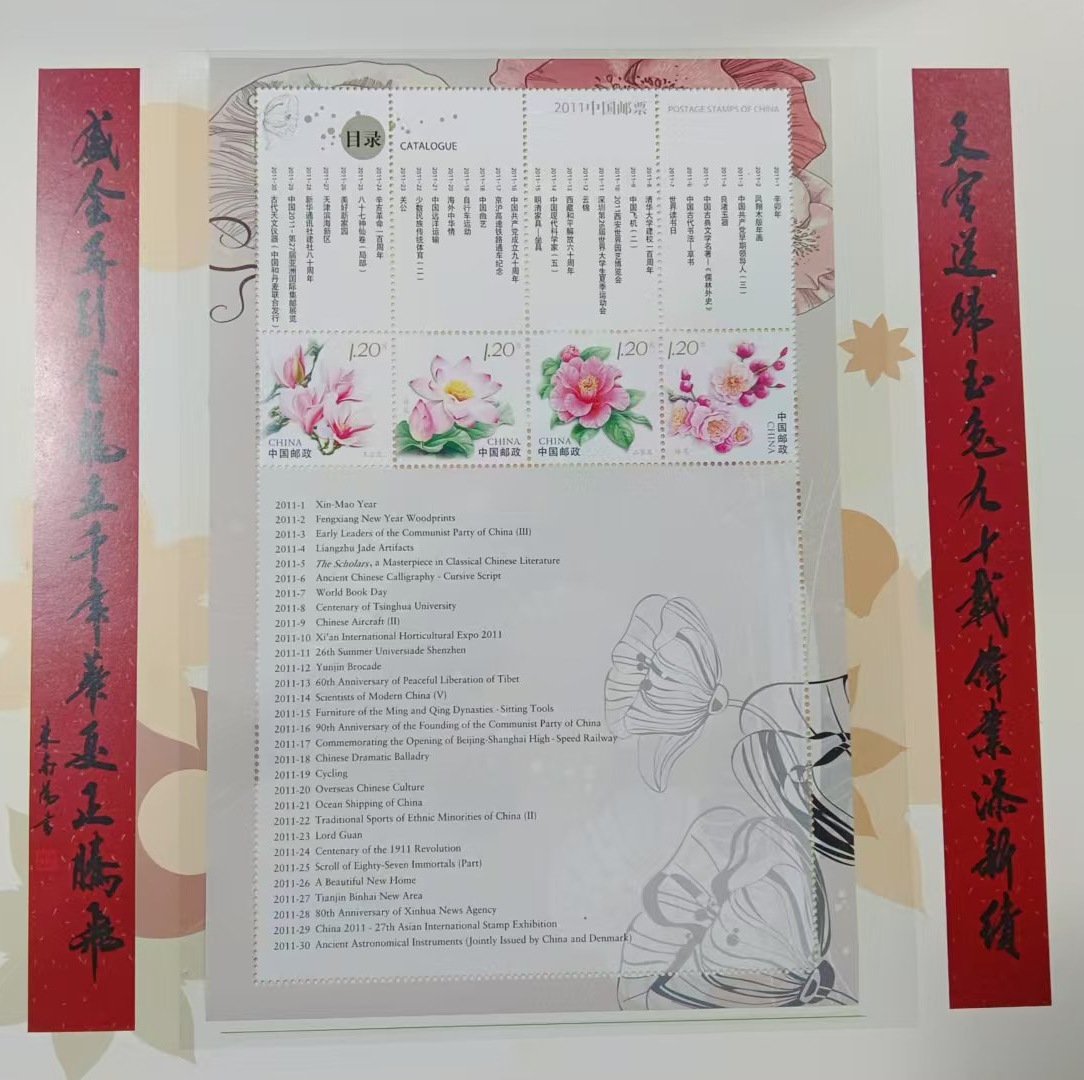 天宫送归玉兔九十载伟业添新绩
盛会再引金龙五千年华夏正腾飞
2011中国邮票
POSTAGE STAMPS OF CHINA
目录
CATALOGUE
2011-1 辛卯年
2011-2 凤翔木版年画
2011-3 中国共产党早期领导人（三）
2011-4 良渚玉器
2011-5 中国古典文学名著—《儒林外史》
2011-6 中国古代书法—草书
2011-7 世界读书日
2011-8 清华大学建校一百周年
2011-9 中国飞机（二）
2011-10 2011西安世界园艺博览会
2011-11 深圳第26届世界大学生夏季运动会
2011-12 云锦
2011-13 西藏和平解放六十周年
2011-14 中国现代科学家（五）
2011-15 明清家具—坐具
2011-16 中国共产党成立九十周年
2011-17 京沪高速铁路通车纪念
2011-18 中国曲艺
2011-19 自行车运动
2011-20 海外中华情
2011-21 中国远洋运输
2011-22 少数民族传统体育（二）
2011-23 关公
2011-24 辛亥革命一百周年
2011-25 八十七神仙卷（局部）
2011-26 美好新家园
2011-27 天津滨海新区
2011-28 新华通讯社建社八十周年
2011-29 中国2011-第27届亚洲国际集邮展览
2011-30 古代天文仪器（中国和丹麦联合发行）
1.20元
CHINA
中国邮政
1.20元
CHINA
中国邮政
1.20元
CHINA
中国邮政
1.20元
中国邮政
CHINA
2011-1 Xin-Mao Year
2011-2 Fengxiang New Year Woodprints
2011-3 Early Leaders of the Communist Party of China (III)
2011-4 Liangzhu Jade Artifacts
2011-5 The Scholars, a Masterpiece in Classical Chinese Literature
2011-6 Ancient Chinese Calligraphy - Cursive Script
2011-7 World Book Day
2011-8 Centenary of Tsinghua University
2011-9 Chinese Aircraft (II)
2011-10 Xi'an International Horticultural Expo 2011
2011-11 26th Summer Universiade Shenzhen
2011-12 Yunjin Brocade
2011-13 60th Anniversary of Peaceful Liberation of Tibet
2011-14 Scientists of Modern China (V)
2011-15 Furniture of the Ming and Qing Dynasties - Sitting Tools
2011-16 90th Anniversary of the Founding of the Communist Party of China
2011-17 Commemorating the Opening of Beijing-Shanghai High-Speed Railway
2011-18 Chinese Dramatic Balladry
2011-19 Cycling
2011-20 Overseas Chinese Culture
2011-21 Ocean Shipping of China
2011-22 Traditional Sports of Ethnic Minorities of China (II)
2011-23 Lord Guan
2011-24 Centenary of the 1911 Revolution
2011-25 Scroll of Eighty-Seven Immortals (Part)
2011-26 A Beautiful New Home
2011-27 Tianjin Binhai New Area
2011-28 80th Anniversary of Xinhua News Agency
2011-29 China 2011 - 27th Asian International Stamp Exhibition
2011-30 Ancient Astronomical Instruments (Jointly Issued by China and Denmark)